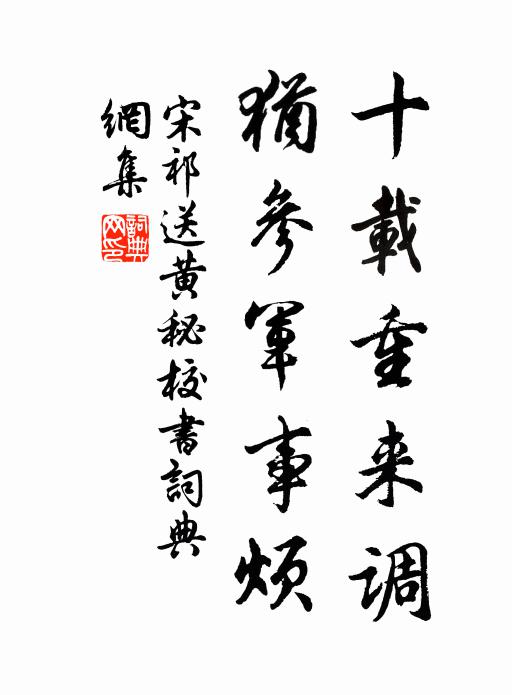 十載重来调
猶參軍事煩
宋祁送黄秘校書詞典
網集
詞典网印